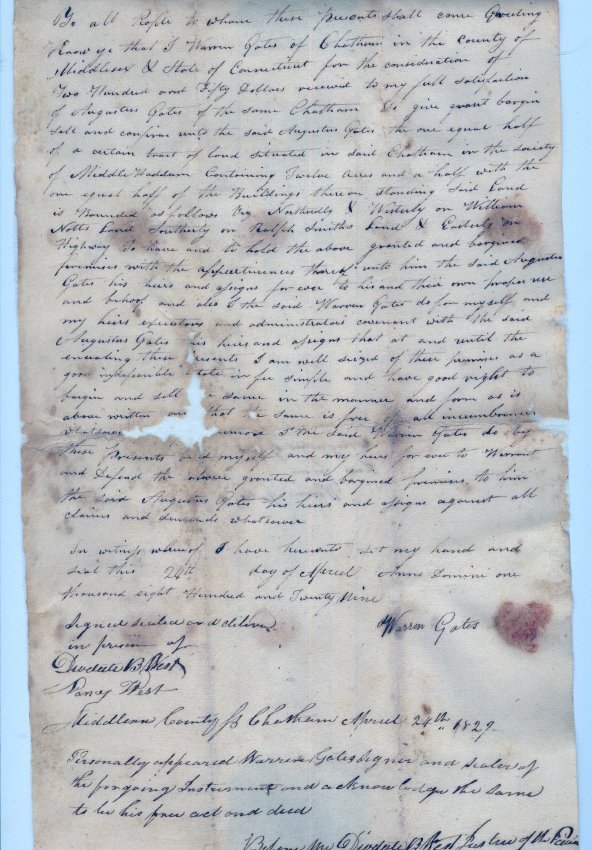 To all People to whome these presents shall come Greeting
Know ye that I Warren Gates of Chatham in the county of
Middlesex & State of Connecticut for the consideration of
Two Hundred and Fifty Dollars received to my full satisfaction
of Augustus Gates of the same Chatham Do give grant bargin
Sell and confirm unto the said Augustus Gates the one equal half
of a certain tract of land situated in said Chatham in the society
of Middle Haddam Containing Twelve Acres and a half with the
one equal half of the Buildings thereon standing Said Land
is Bounded as follows Viz Northerdly & Westerly on William
Notts Land Southerly on Ralph Smiths Land & Easterly on
Highway To have and to hold the above granted and bargined
premises with the appurtenances thereof unto him the said Augustus
Gates his heirs and assigns for ever to his and their own proper use
and behoof and also I the said Warren Gates do for myself and
my heirs executors and administrators covenant with the said
Augustus Gates his heirs and assigns that at and until the
ensealing these Presents I am well seized of these premises as a
good state in fee simple and have good right to
bargin and sell same in the manner and form as is
above written and that same is free all incumbrances
whatsoever I the said Warren Gates do by
these Presents bind myself and my heirs for ever to Warrant
and Defend the above granted and bargined premises to him
the said Augustus Gates his heirs and assigns against all
claims and demands whatsoever
In witness whereof I have hereunto set my hand and
seal this 24th day of April Anno Domini one
thousand eight Hundred and Twenty Nine
Signed sealed and deliver
in presence of Warren Gates
Diodate B West
Nancy West
Middlesex County Ss Chatham April 24th 1829
Personally appeared Warren Gates Signer and sealer of
the forgoing Instrument and acknowledge the same
to be his free act and deed
Before Me Diodate B West Justice of the Peace